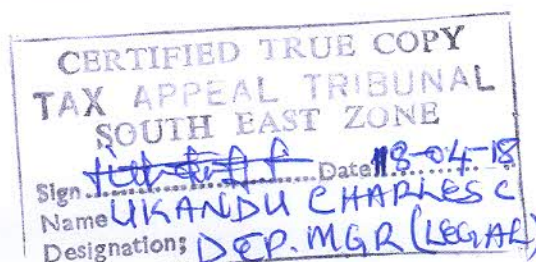 CERTIFIED TRUE COPY
TAX APPEAL TRIBUNAL
SOUTH EAST ZONE
Sign Date 18-04-18
Name UKANDU CHARLES C
Designation; DEP. MGR (LEGAL)